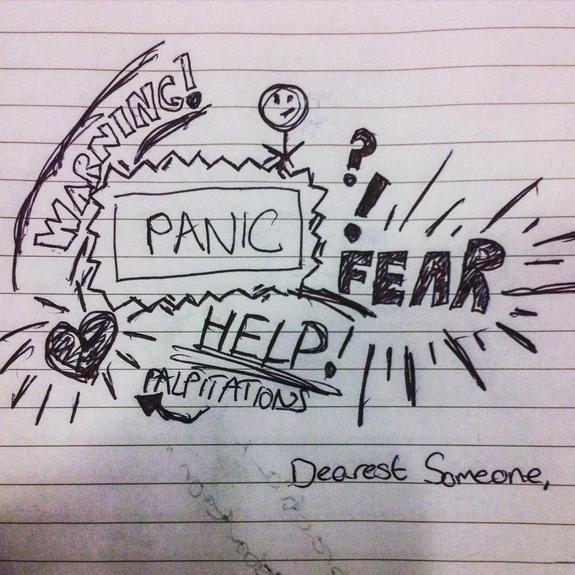 WARNING!
PANIC
?!
FEAR
HELP!
PALPITATIONS
Dearest Someone,